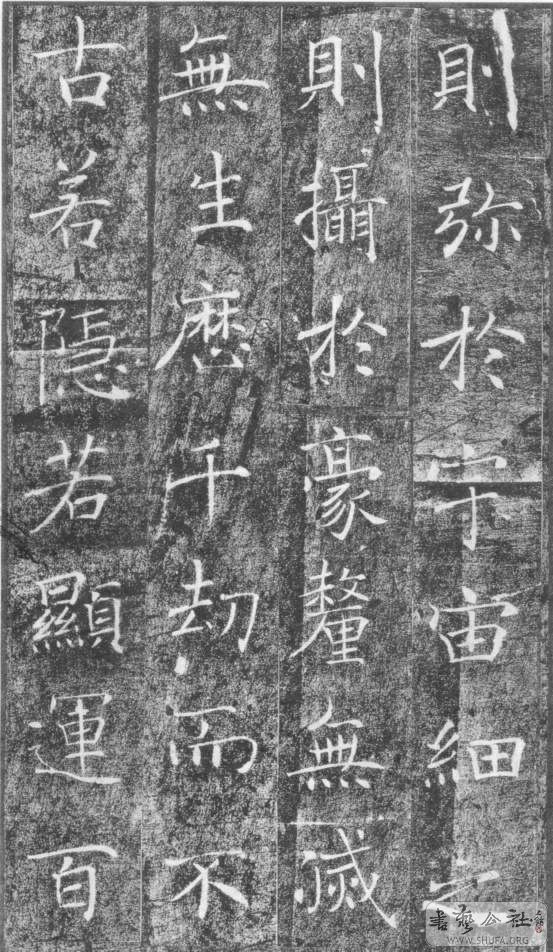 則弥於宇宙細之
則攝於豪釐無滅
無生歷千劫而不
古若隱若顯運百
書藝公社
WWW.SHUFA.ORG